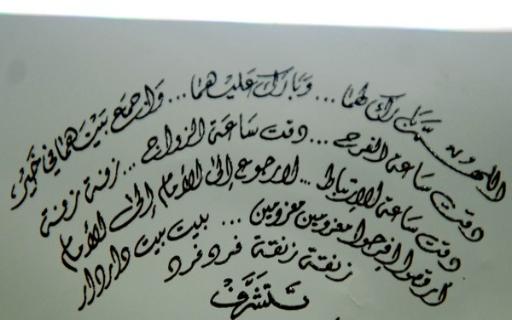 اللهمّ بارك لهما ... وبارك عليهما ... واجمع بينهما في خير
دقت ساعة الفرح ... دقت ساعة الزواج ... زفة زفة
دقت ساعة الارتباط ... لا رجوع إلى الأمام إلى الأمام
ارقصوا افرحوا معزومين معزومين ... بيت بيت دار دار
زنقة زنقة فرد فرد
تتشرّف